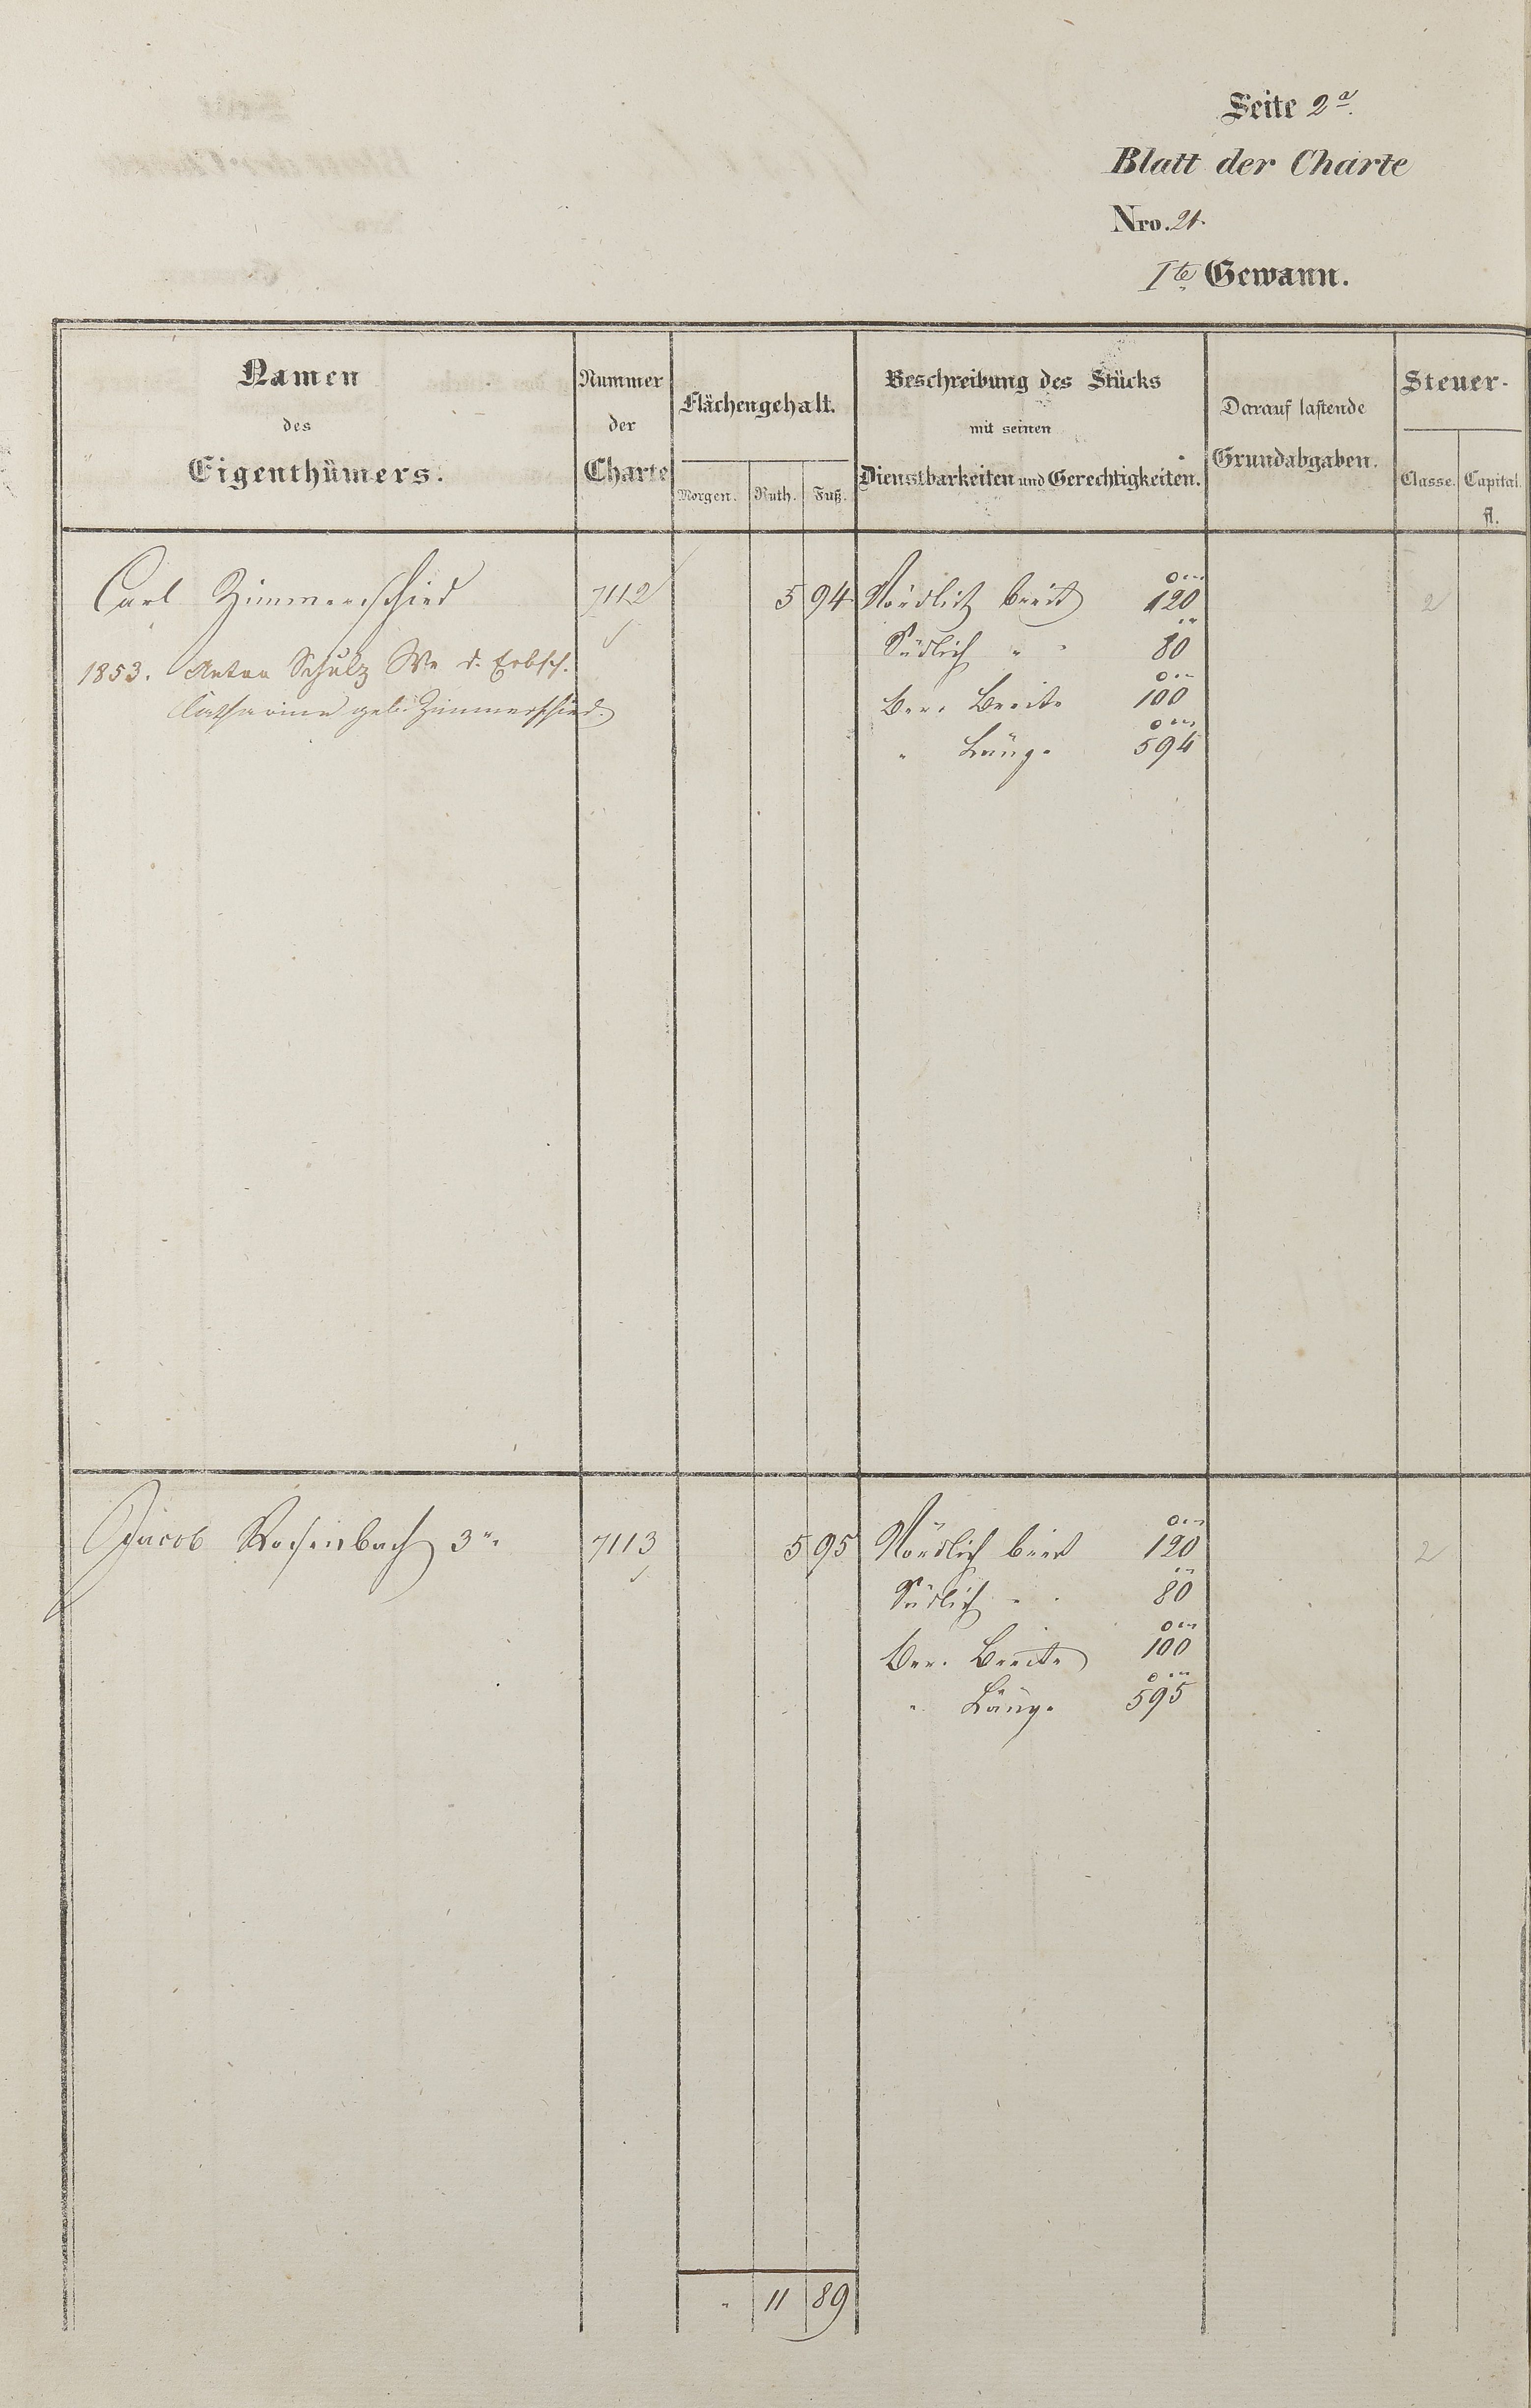 Seite 2a.
Blatt der Charte
Nro. 21.
Ite Gewann.
Namen
des
Eigenthümers.
Nummer
der
Charte
Flächengehalt.
Morgen. Ruth. Fuß.
Beschreibung des Stücks
mit seinen
Dienstbarkeiten und Gerechtigkeiten.
Darauf lastende
Grundabgaben.
Steuer-
Classe. Capital.
fl.
Carl Zimmerschied 7112 5 94 Nördlich breit 120 2
Südlich " " 80
1853. Anton Schulz We d. Erbsch.
Ber. Breite 100
Catharine geb. Zimmerschied.
" Länge 594
Jacob 3r 7113 5 95 Nördlich breit 120 2
Südlich " " 80
Ber. Breite 100
" Länge 595
" 11 89